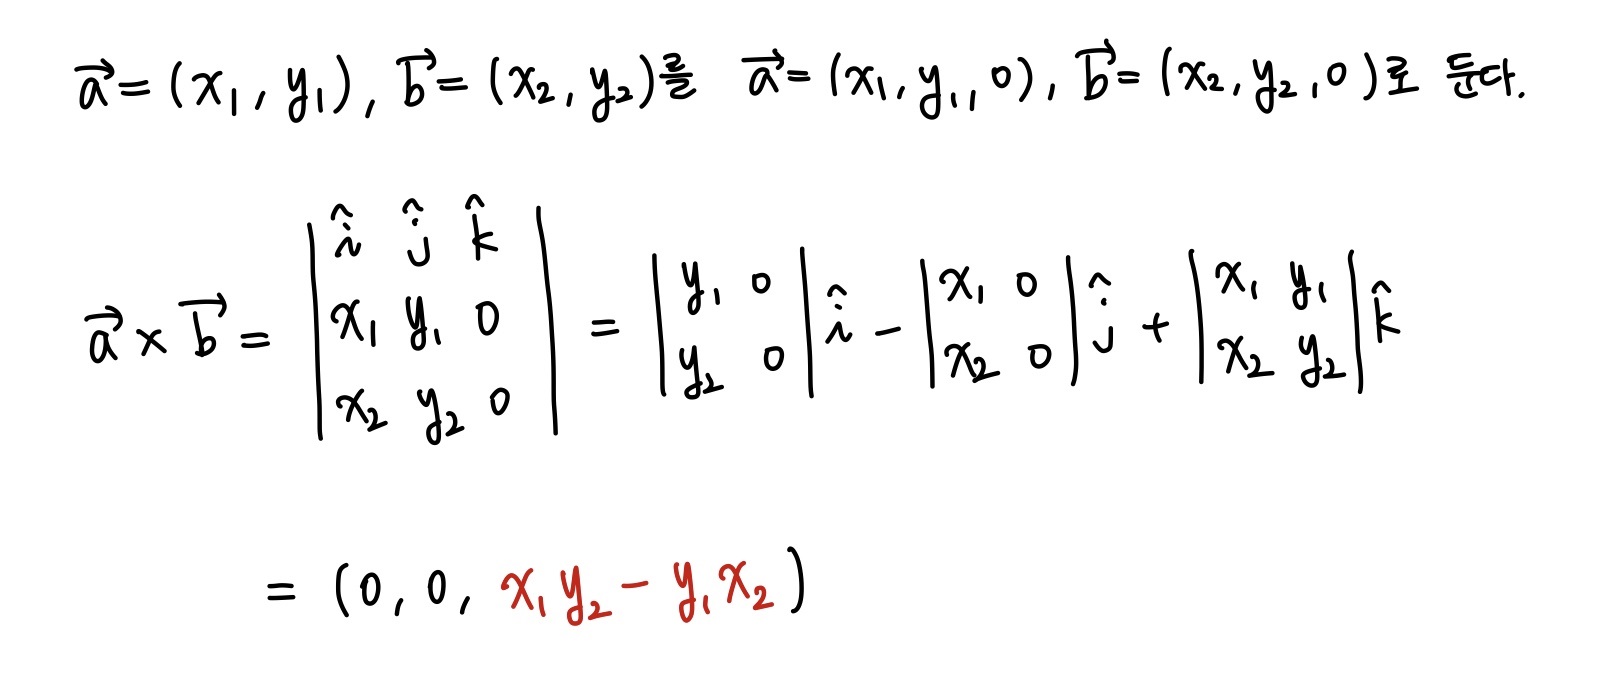 a⃗ = (x₁, y₁), b⃗ = (x₂, y₂)를 a⃗ = (x₁, y₁, 0), b⃗ = (x₂, y₂, 0)로 둔다.
a⃗ × b⃗ = |î ĵ k̂; x₁ y₁ 0; x₂ y₂ 0| = |y₁ 0; y₂ 0| î − |x₁ 0; x₂ 0| ĵ + |x₁ y₁; x₂ y₂| k̂
= (0, 0, x₁y₂ − y₁x₂)